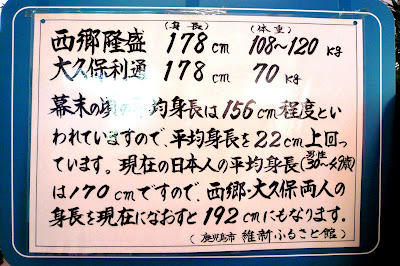 (身長) (体重)
西郷隆盛 178cm 108〜120kg
大久保利通 178cm 70kg
幕末の頃の平均身長は156cm程度とい
われていますので、平均身長を22cm上回っ
ています。現在の日本人の平均身長(男性30〜49歳)
は170cmですので、西郷・大久保両人の
身長を現在になおすと192cmにもなります。
(鹿児島市 維新ふるさと館)